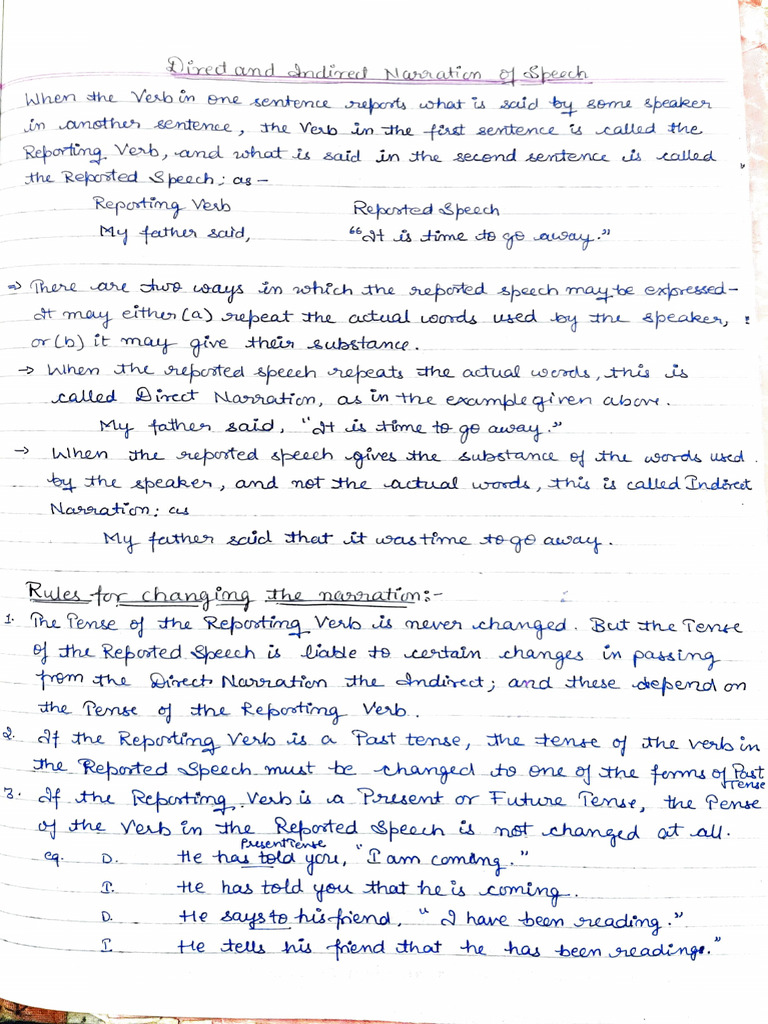 Direct and Indirect Narration of Speech
When the Verb in one sentence reports what is said by some speaker
in another sentence, the Verb in the first sentence is called the
Reporting Verb, and what is said in the second sentence is called
the Reported Speech; as -
Reporting Verb Reported Speech
My father said, "It is time to go away."
⇒ There are two ways in which the reported speech may be expressed-
It may either (a) repeat the actual words used by the speaker,
or (b) it may give their substance.
→ When the reported speech repeats the actual words, this is
called Direct Narration, as in the example given above.
My father said, "It is time to go away."
→ When the reported speech gives the substance of the words used
by the speaker, and not the actual words, this is called Indirect
Narration; as
My father said that it was time to go away.
Rules for changing the narration:-
1. The Tense of the Reporting Verb is never changed. But the Tense
of the Reported Speech is liable to certain changes in passing
from the Direct Narration the Indirect; and these depend on
the Tense of the Reporting Verb.
2. If the Reporting Verb is a Past tense, the tense of the verb in
the Reported Speech must be changed to one of the forms of Past
Tense
3. If the Reporting Verb is a Present or Future Tense, the Tense
of the Verb in the Reported Speech is not changed at all.
Present Tense
eg. D. He has told you, "I am coming."
I. He has told you that he is coming.
D. He says to his friend, "I have been reading."
I. He tells his friend that he has been reading."